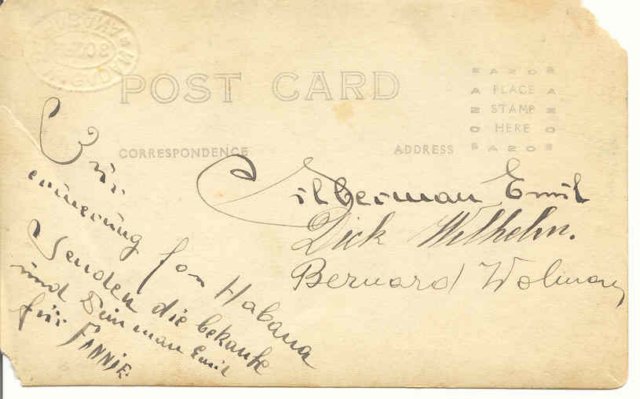 POST CARD
AZO
PLACE
STAMP
HERE
AZO
CORRESPONDENCE
ADDRESS
Für
erinnerung fon Habana
Senden die bekante
und Dein man Emil
für FANNIE
Silberman Emil
Dick Wilhelm.
Bernard Wolman